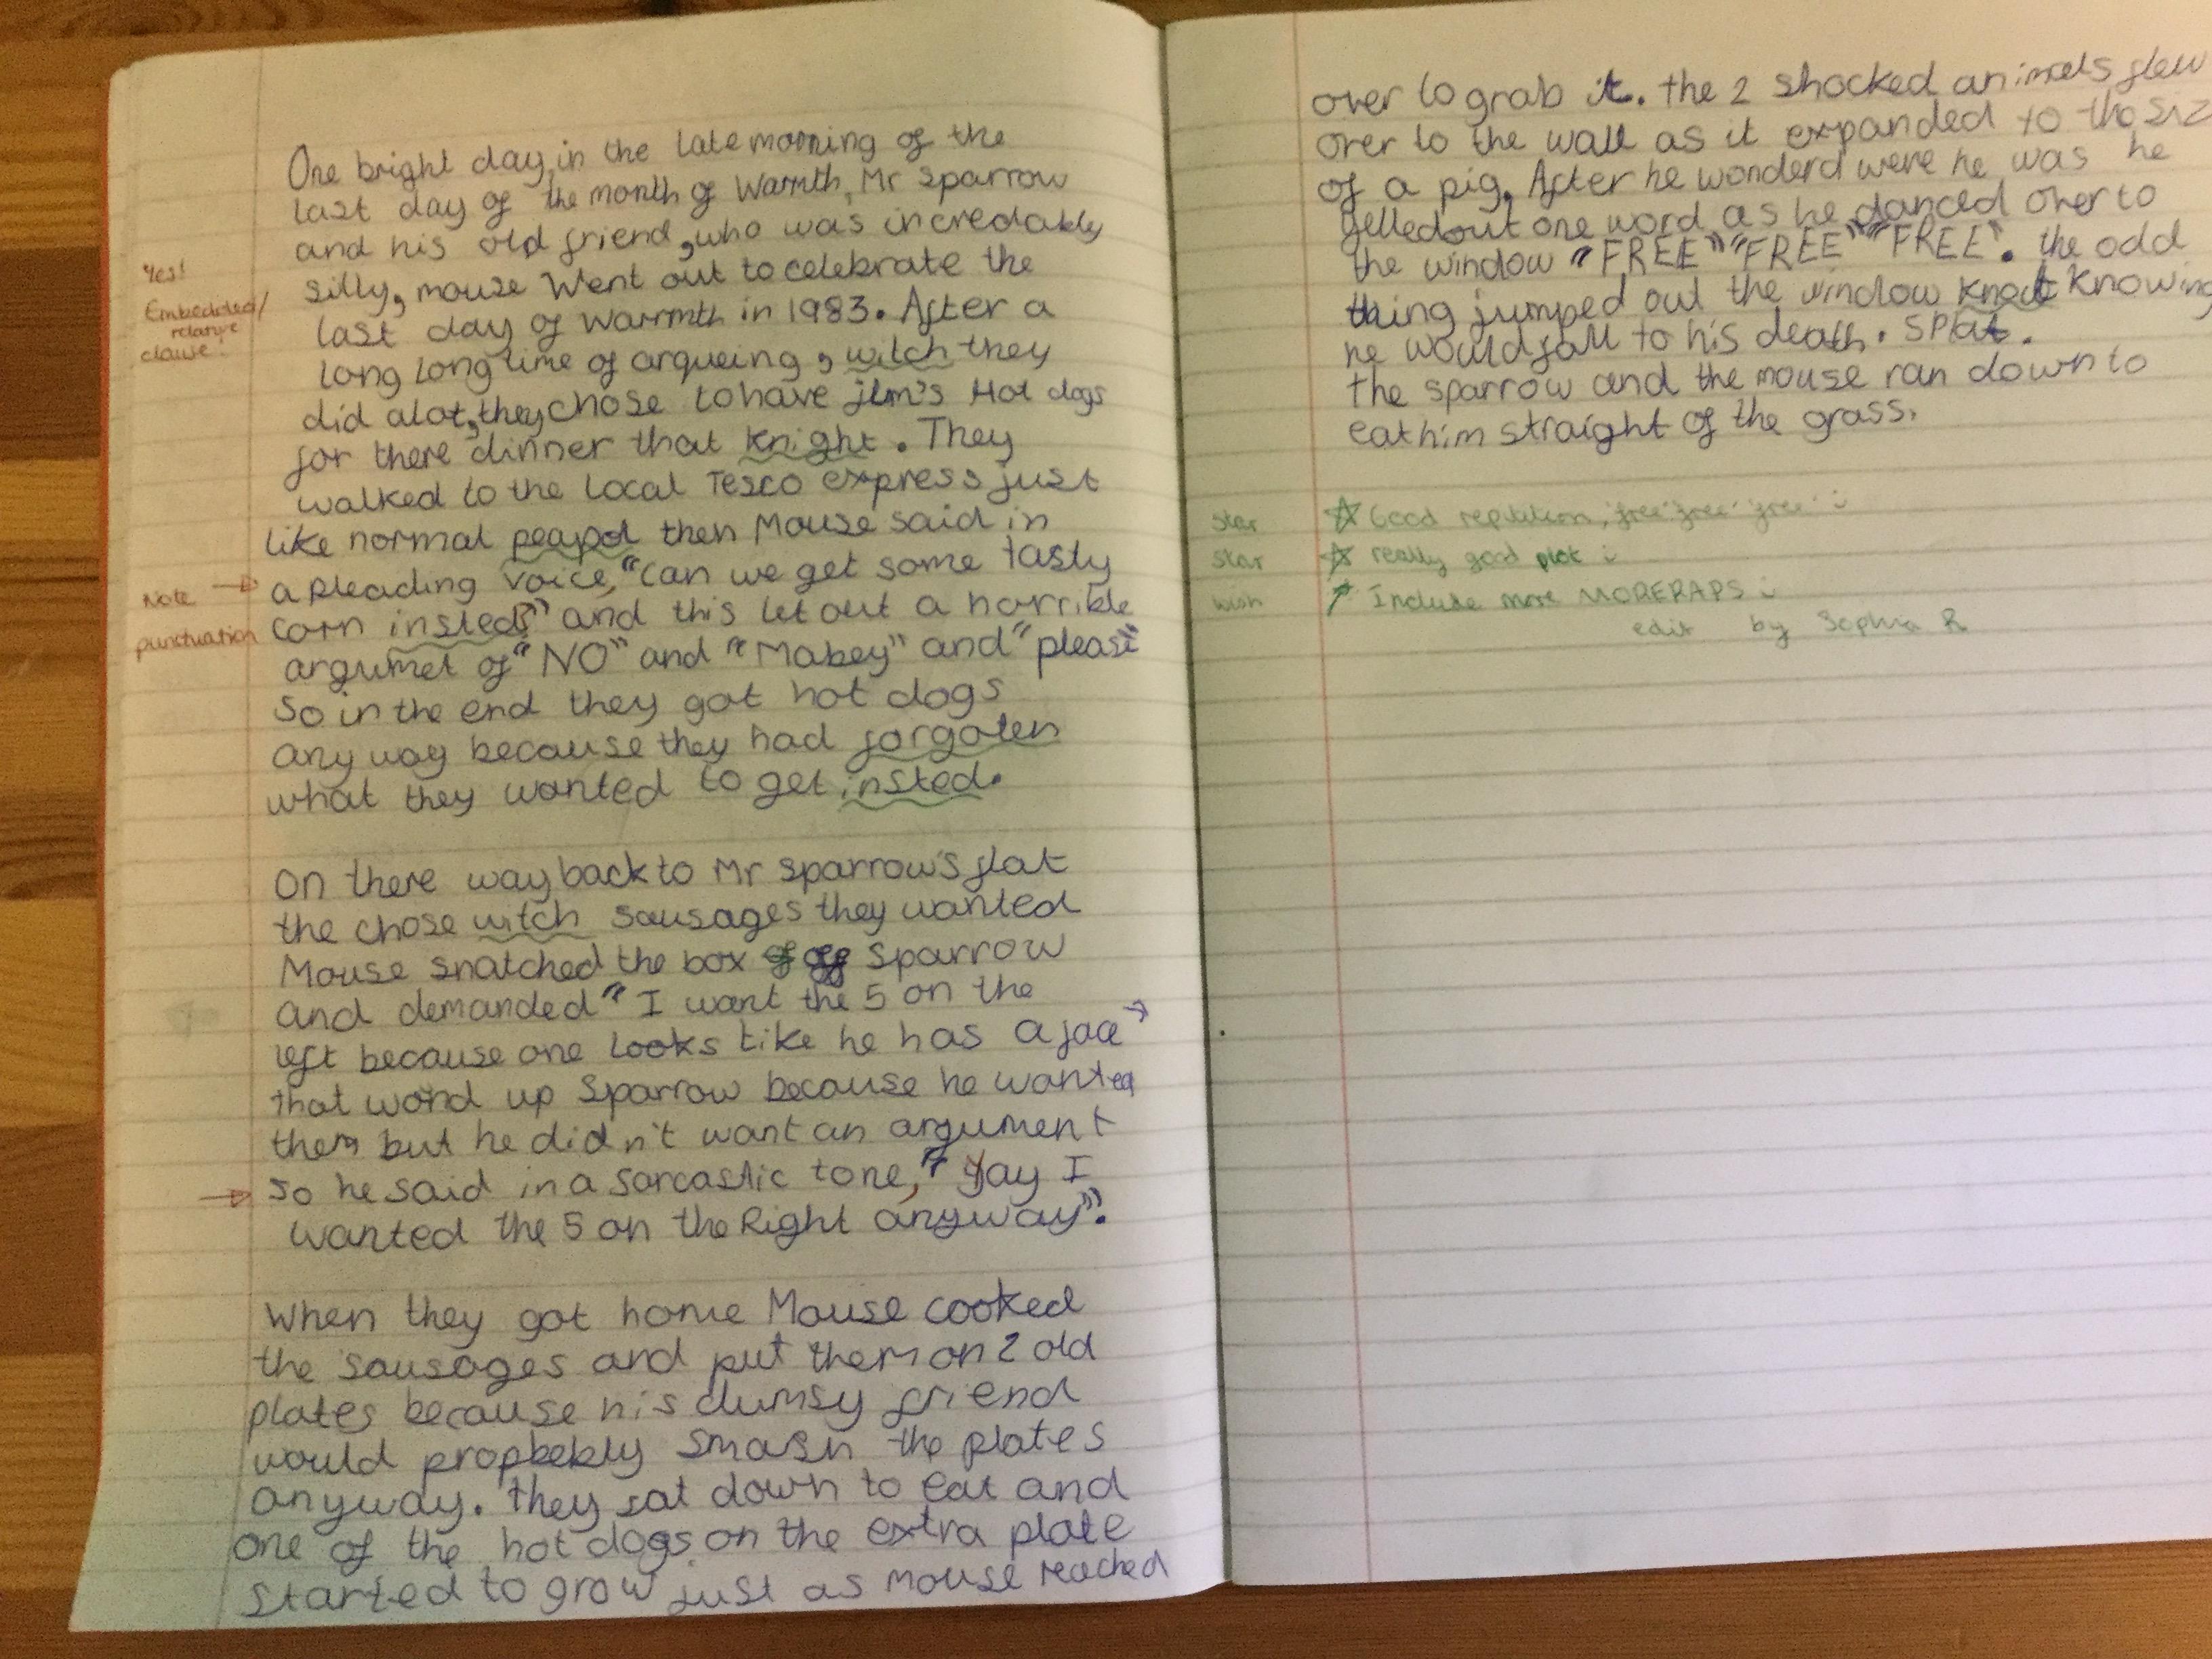 One bright day, in the late morning of the
last day of the month of Warmth, Mr Sparrow
and his old friend, who was incredably
silly, mouse Went out to celebrate the
last day of warmth in 1983. After a
long long time of argueing, witch they
did alot, they chose to have jim's Hot dogs
for there dinner that knight. They
walked to the local Tesco express just
like normal peapol then Mouse said in
a pleading voice, "can we get some tasty
corn insted?" and this let out a horrible
argumet of "NO" and "Mabey" and "please"
So in the end they got hot dogs
any way because they had forgoten
what they wanted to get insted.
On there way back to Mr Sparrow's flat
the chose witch sausages they wanted
Mouse snatched the box off Sparrow
and demanded "I want the 5 on the
left because one looks like he has a face"
that wond up Sparrow because he wanted
them but he didn't want an argument
so he said in a sarcastic tone, "Yay I
wanted the 5 on the Right anyway".
When they got home Mouse cooked
the sausages and put them on 2 old
plates because his clumsy friend
would propbebly smash the plates
anyway. They sat down to eat and
one of the hot dogs on the extra plate
started to grow just as mouse reached
Yes!
Embedded/
relative
clause!
Note
punctuation
over to grab it. the 2 shocked animels flew
over to the wall as it expanded to the siz
of a pig. After he wonderd were he was he
yelled out one word as he danced over to
the window "FREE" "FREE" "FREE". the odd
thing jumped out the window knot knowing
he would fall to his death. Splat.
the sparrow and the mouse ran down to
eat him straight of the grass.
Star Good repitition, 'free' 'free' 'free'
Star really good plot
wish Include more MORERAPS
edit by Sophia R